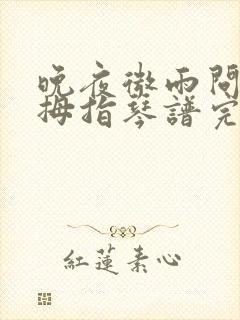 晚夜微雨問
拇指琴譜完
紅蓮素心